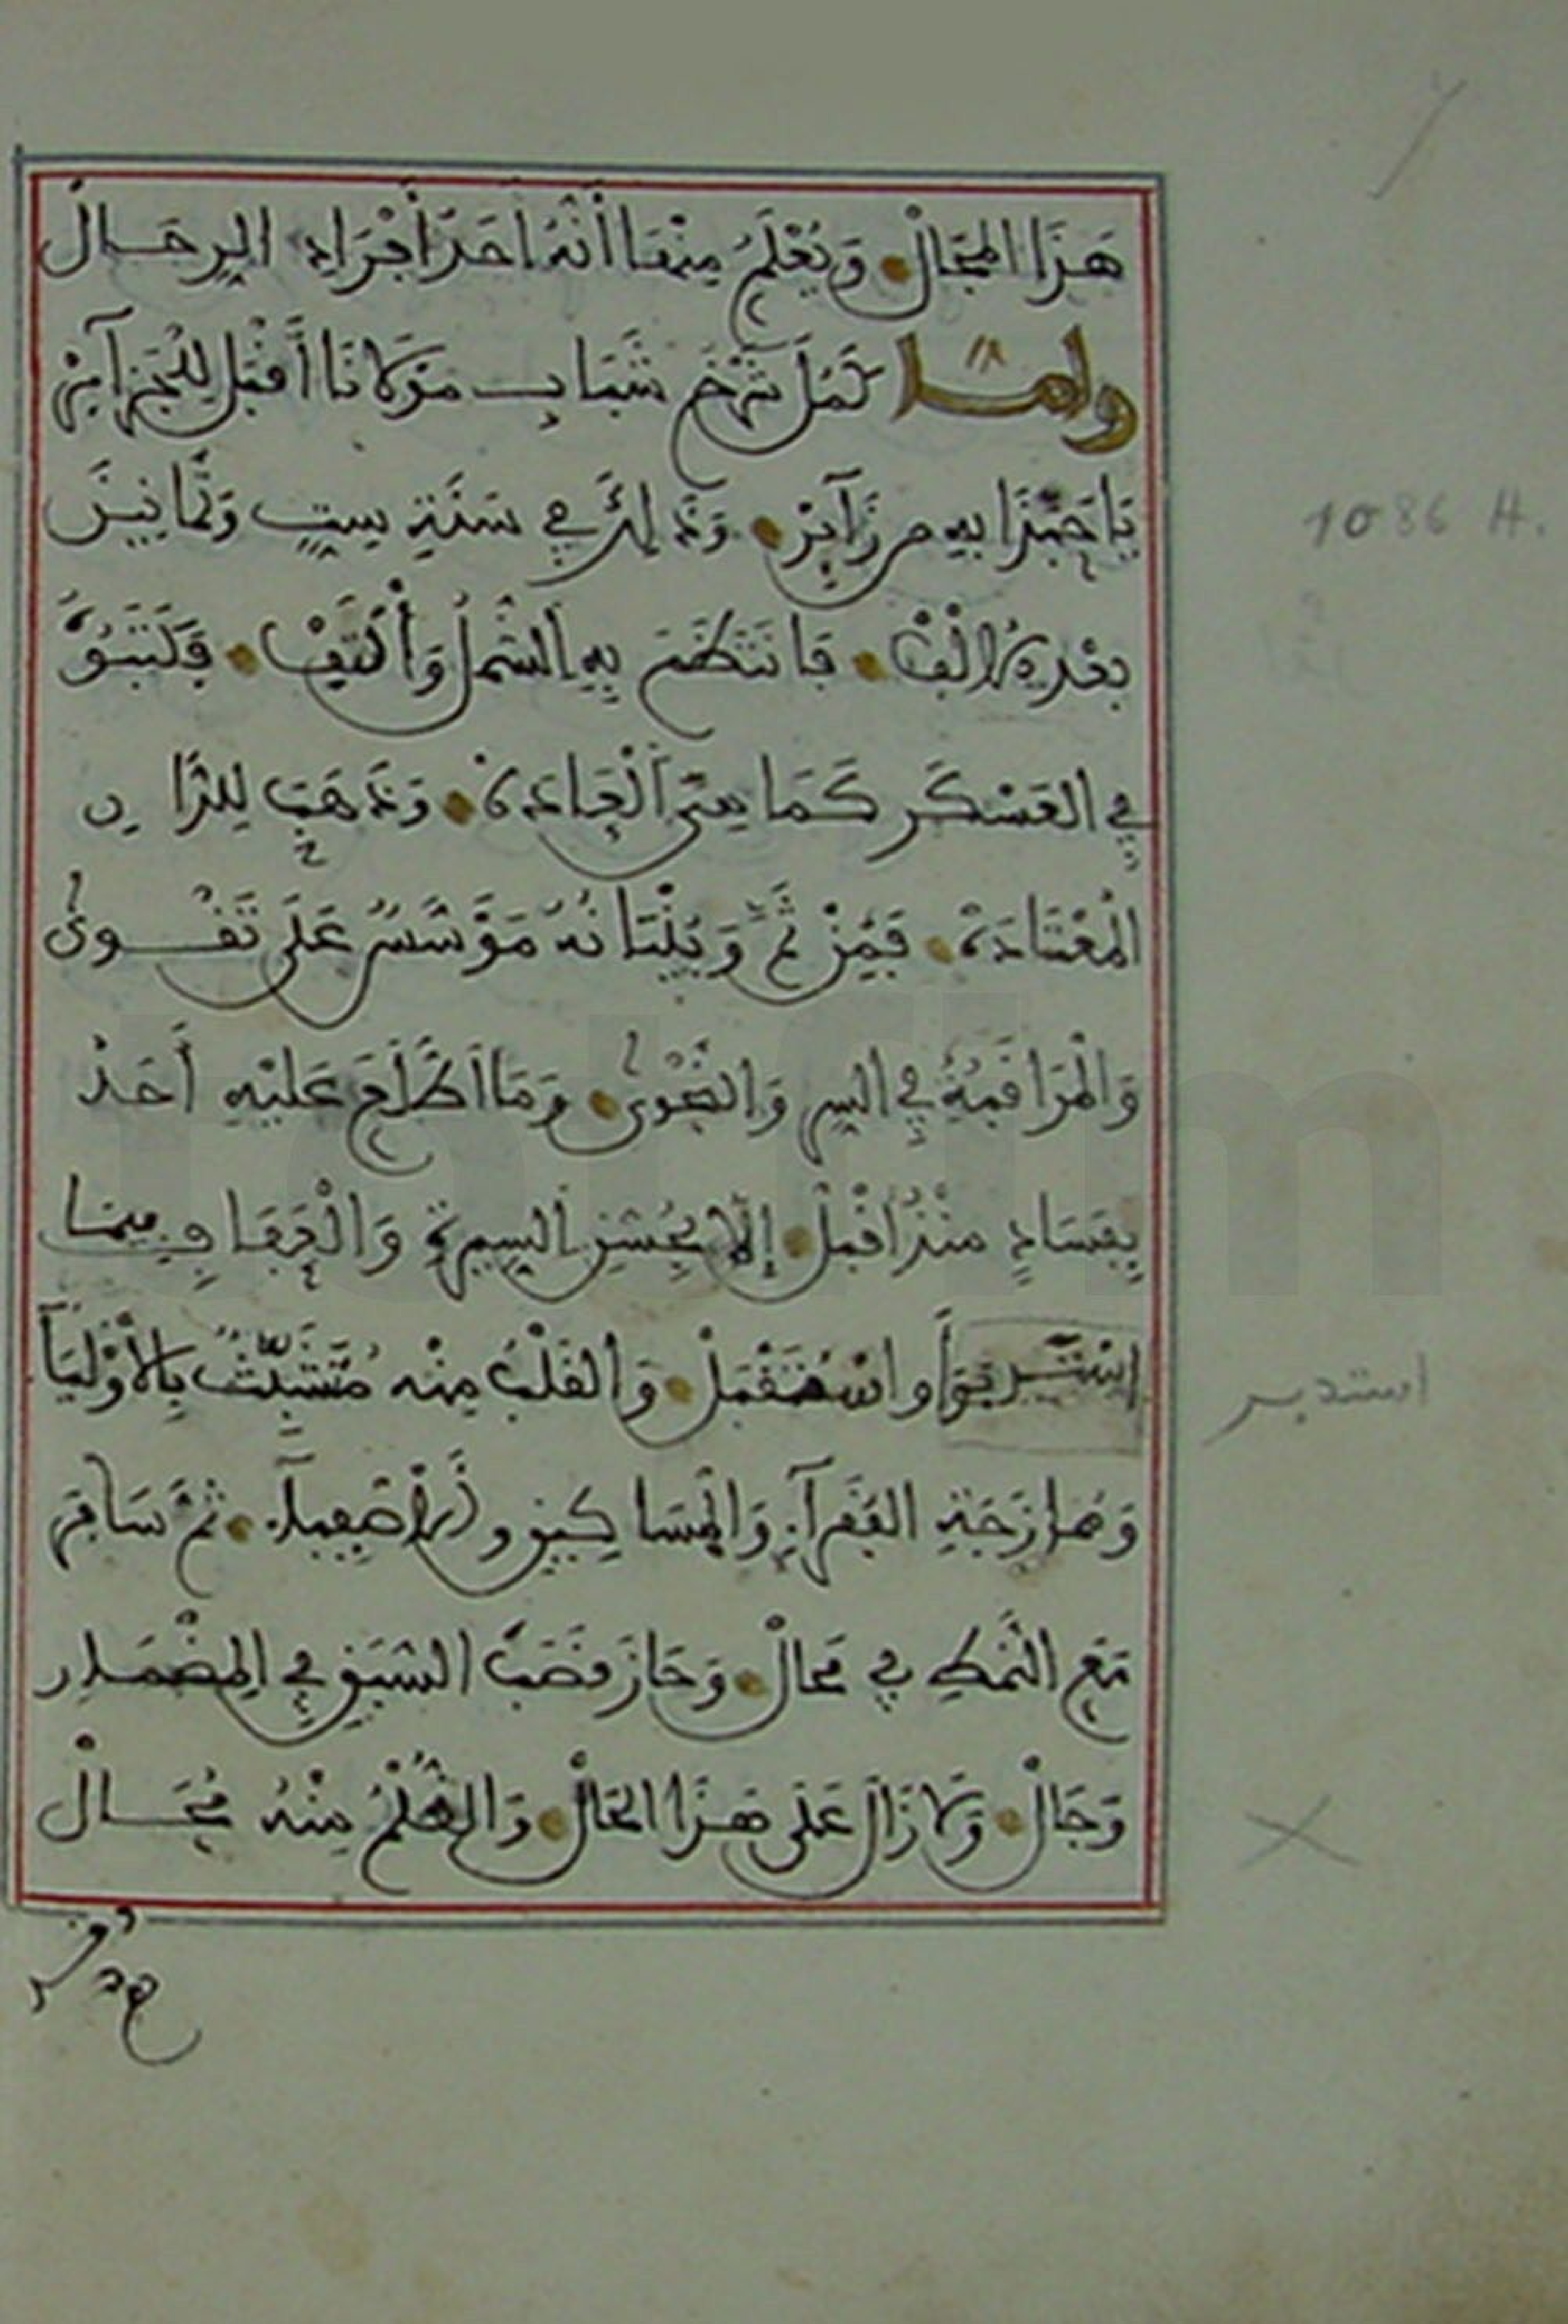 هَذَا المَجَالْ وَيُعْلَمُ مِنْهَا أَنَّهُ أَحَدُ أَفْرَادِ الرِجَالْ
ولمّا كَمُلَ شَرْخُ شَبَابِ مَوْلَانَا أَقْبَلَ لِلْجَزَآئِرْ
يَا حَبَّذَا بِهِ مِن زَآئِرْ وَذَلِكَ فِي سَنَةِ سِتٍّ وَثَمَانِينَ
بَعْدَ الأَلْفْ فَانْتَظَمَ بِهِ الشَّمْلُ وَأْتَلَفْ فَكُتِبَ
فِي العَسْكَر كَمَا هِيَ الْعَادَة وَذَهَبَ لِلدَّارِ
المُعْتَادَة فَمِنْ ثَمَّ وَبُنْيَانُهُ مُؤَسَّسٌ عَلَى تَقْوَى
وَالْمُرَاقَبَةُ فِي السِرِّ وَالنَّجْوَى وَمَا اطَّلَعَ عَلَيْهِ أَحَدٌ
بِفَسَادٍ مُنْذُ أَقْبَلْ إِلَّا بِحُسْنِ السِيرَةِ وَالْعَفَافِ فِيمَا
اسْتَدْبَرَ وَاسْتَقْبَلْ وَالقَلْبُ مِنْه مُتَشَبِّثٌ بِالأَوْلِيَا
وَمُلَازَمَةِ الفُقَرَآءِ وَالْمَسَاكِينِ وَالأَصْفِيَآء ثُمَّ سَافَرَ
مَعَ النَّمَطِ فِي مَحَالْ وَحَازَ قَصَبَ السَّبَقِ فِي المِضْمَارِ
وَجَالْ وَلَا زَالَ عَلَى هَذَا الحَالْ وَالظُّلْمُ مِنْهُ مُحَالْ
1086 H.
استدبر